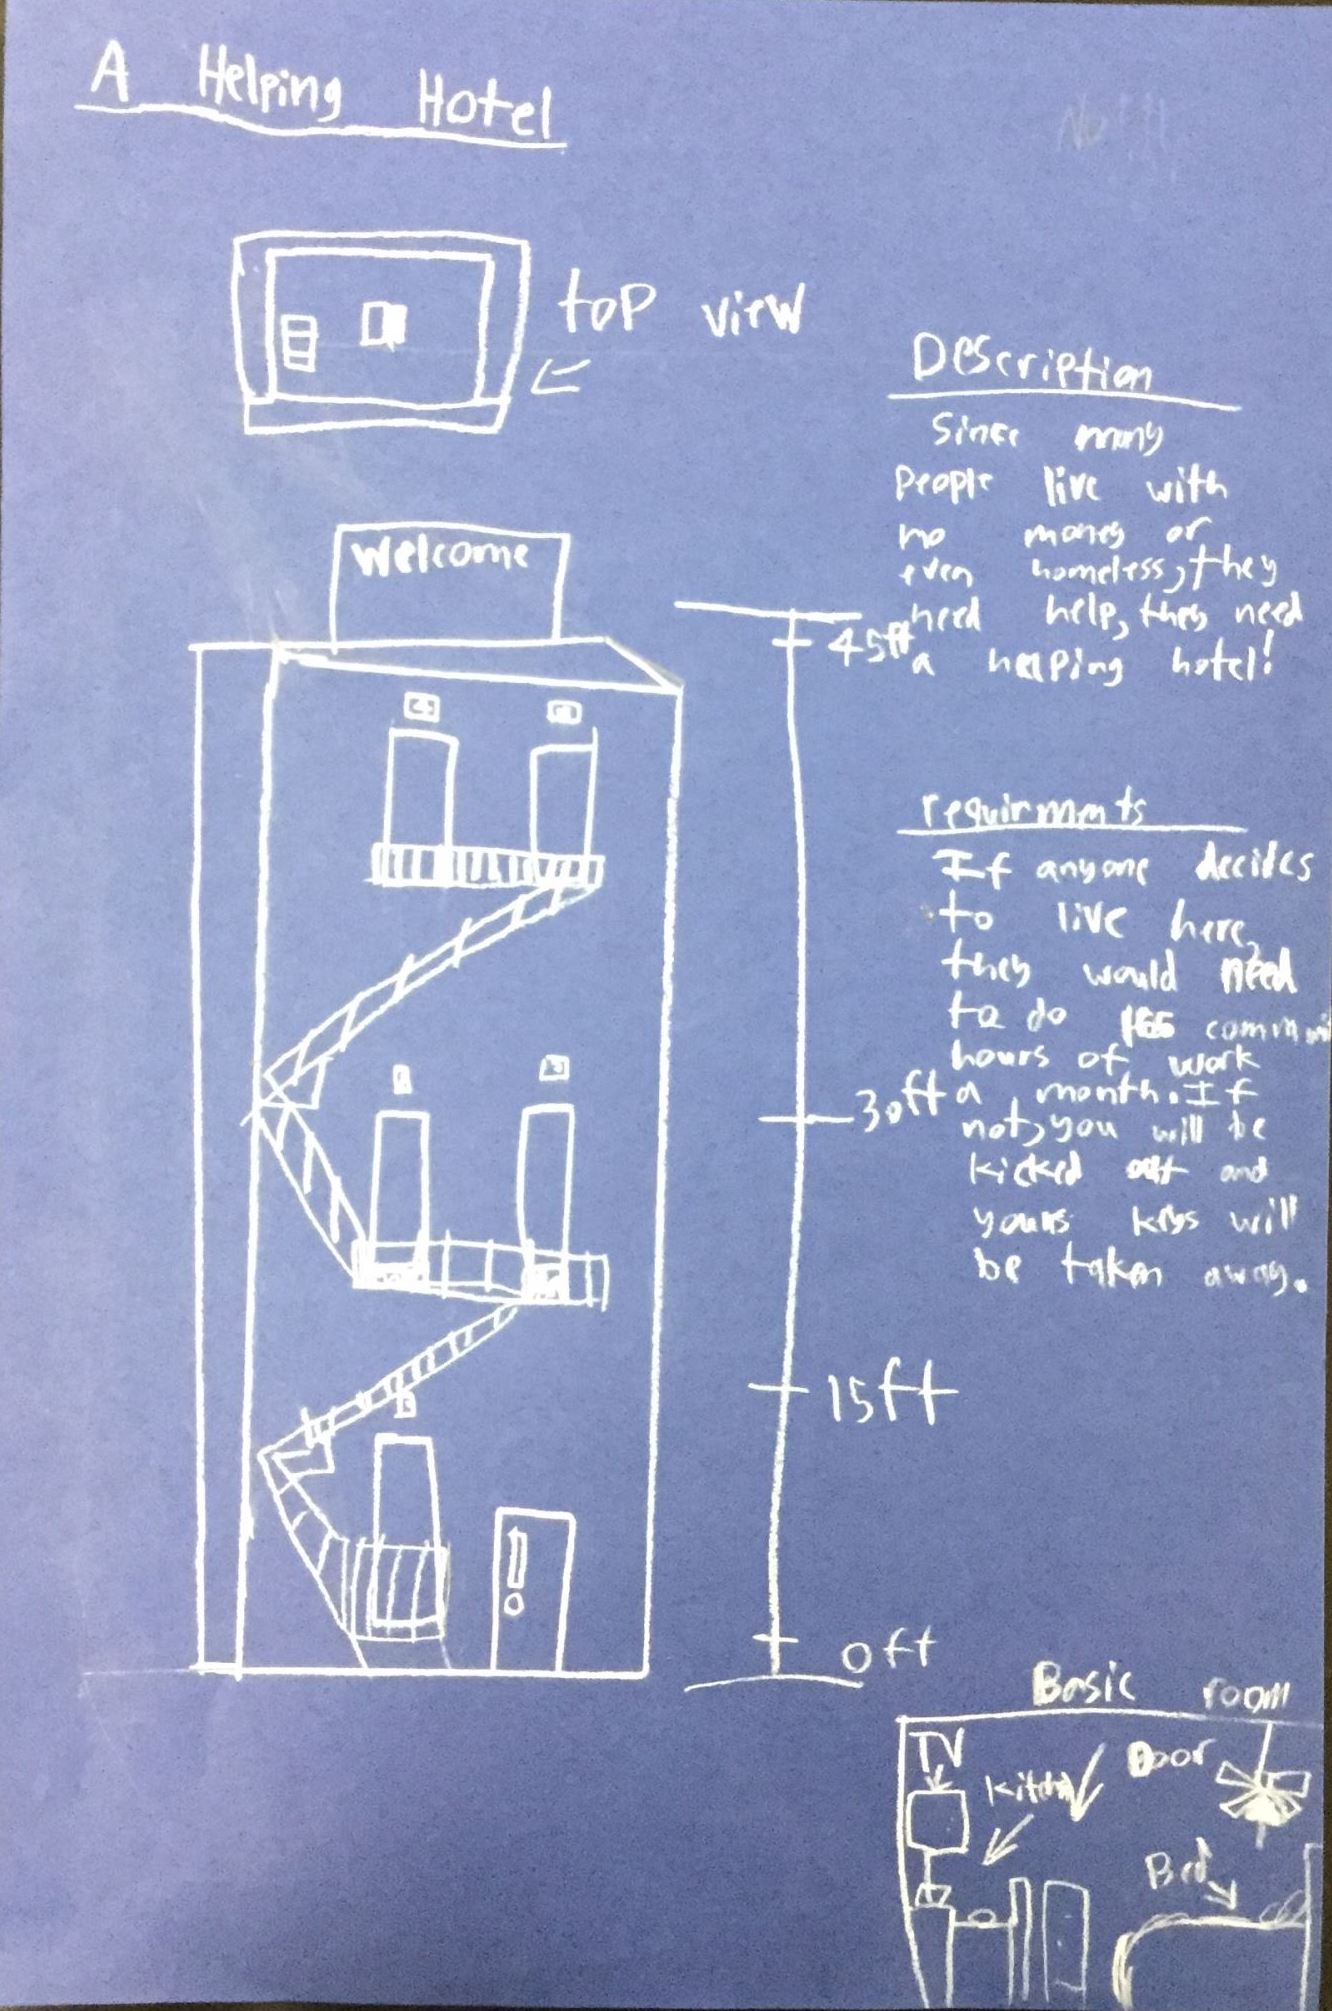 A Helping Hotel
top view
Welcome
Description
Since many
people live with
no money or
even homeless, they
need help, they need
a helping hotel!
45ft
requirments
If anyone decides
to live here,
they would need
to do
hours of work
a month. If
not, you will be
kicked out and
yours keys will
be taken away.
30ft
15ft
0ft
Basic room
TV
Kitchen
Door
Bed